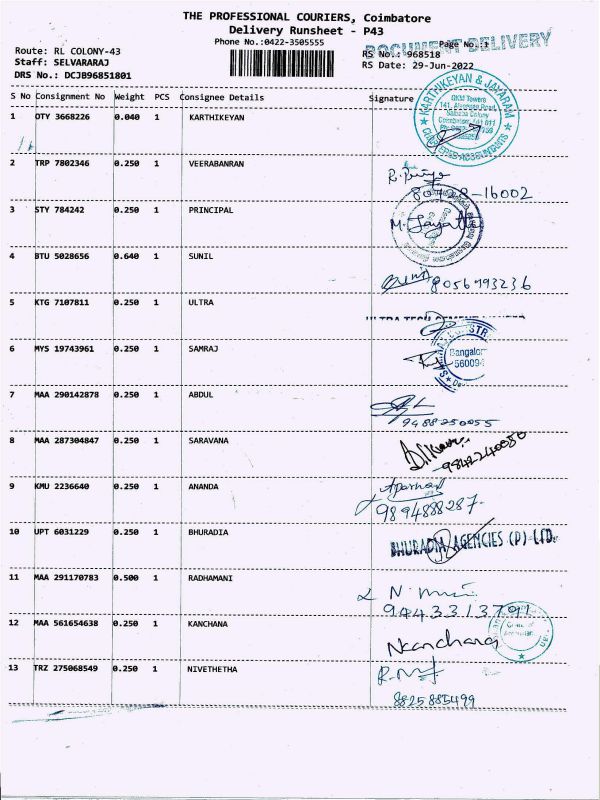 THE PROFESSIONAL COURIERS, Coimbatore
Delivery Runsheet - P43
Phone No.:0422-3505555
DOCUMENT DELIVERY
Page No.:1
Route: RL COLONY-43
RS No.: 968518
Staff: SELVARARAJ
RS Date: 29-Jun-2022
DRS No.: DCJB96851801
S No Consignment No Weight PCS Consignee Details Signature
KARTHIKEYAN & JAYARAM
CHARTERED ACCOUNTANTS
1 OTY 3668226 0.040 1 KARTHIKEYAN
2 TRP 7802346 0.250 1 VEERABANRAN
-16002
3 STY 784242 0.250 1 PRINCIPAL
4 BTU 5028656 0.640 1 SUNIL
8056793236
5 KTG 7107811 0.250 1 ULTRA
6 MYS 19743961 0.250 1 SAMRAJ
Bangalor
7 MAA 290142878 0.250 1 ABDUL
9488250055
8 MAA 287304847 0.250 1 SARAVANA
9842240050
9 KMU 2236640 0.250 1 ANANDA
9894888287
10 UPT 6031229 0.250 1 BHURADIA
BHURADIA AGENCIES (P) LTD.
11 MAA 291170783 0.500 1 RADHAMANI
9443313791
12 MAA 561654638 0.250 1 KANCHANA
N kanchana
13 TRZ 275068549 0.250 1 NIVETHETHA
8825885499